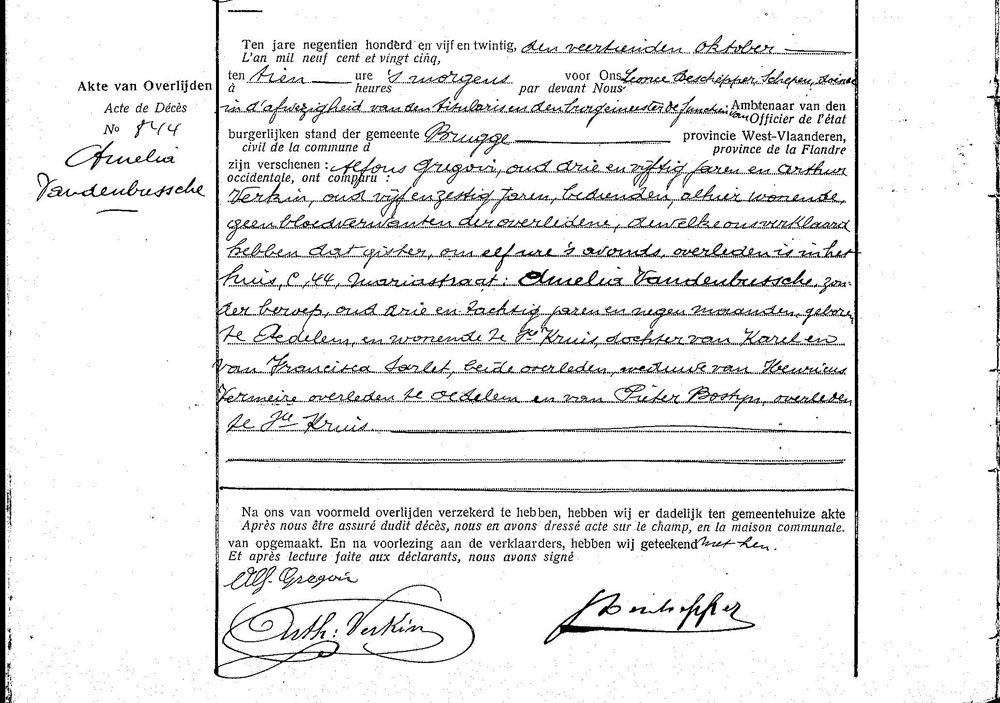 Akte van Overlijden
Acte de Décès
No 844
Amelia
Vandenbussche
Ten jare negentien honderd en vijf en twintig, den veertienden oktober
L'an mil neuf cent et vingt cinq,
ten tien ure 's morgens voor Ons Leonce Deschepper, Schepen,
à heures par devant Nous
in d'afwezigheid van den titularis en den burgemeester Ambtenaar van den
Officier de l'état
burgerlijken stand der gemeente Brugge provincie West-Vlaanderen,
civil de la commune d province de la Flandre
zijn verschenen : Alfons Gregoir, oud drie en vijftig jaren en Arthur
occidentale, ont comparu :
Verkin, oud vijf en zestig jaren, bedienden, alhier wonende,
geen bloedverwanten der overledene, dewelke ons verklaard
hebben dat gister, om elf ure 's avonds, overleden is in het
huis, C, 44, Mariastraat : Amelia Vandenbussche, zon-
der beroep, oud drie en tachtig jaren en negen maanden, geboren
te Oedelem, en wonende te Ste Kruis, dochter van Karel en
van Francisca Sarlet, beide overleden, weduwe van Henricus
Vermeire overleden te Oedelem en van Pieter Bostyn, overleden
te Ste Kruis.
Na ons van voormeld overlijden verzekerd te hebben, hebben wij er dadelijk ten gemeentehuize akte
Après nous être assuré dudit décès, nous en avons dressé acte sur le champ, en la maison communale.
van opgemaakt. En na voorlezing aan de verklaarders, hebben wij geteekend met hen.
Et après lecture faite aux déclarants, nous avons signé
Alf. Gregoir
Arth : Verkin
Deschepper